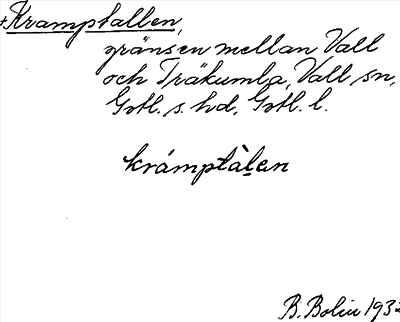 +Kramptallen,
gränsen mellan Vall
och Träkumla, Vall sn,
Gotl. s. hd, Gotl. l.
krámptàlen
B. Bolin